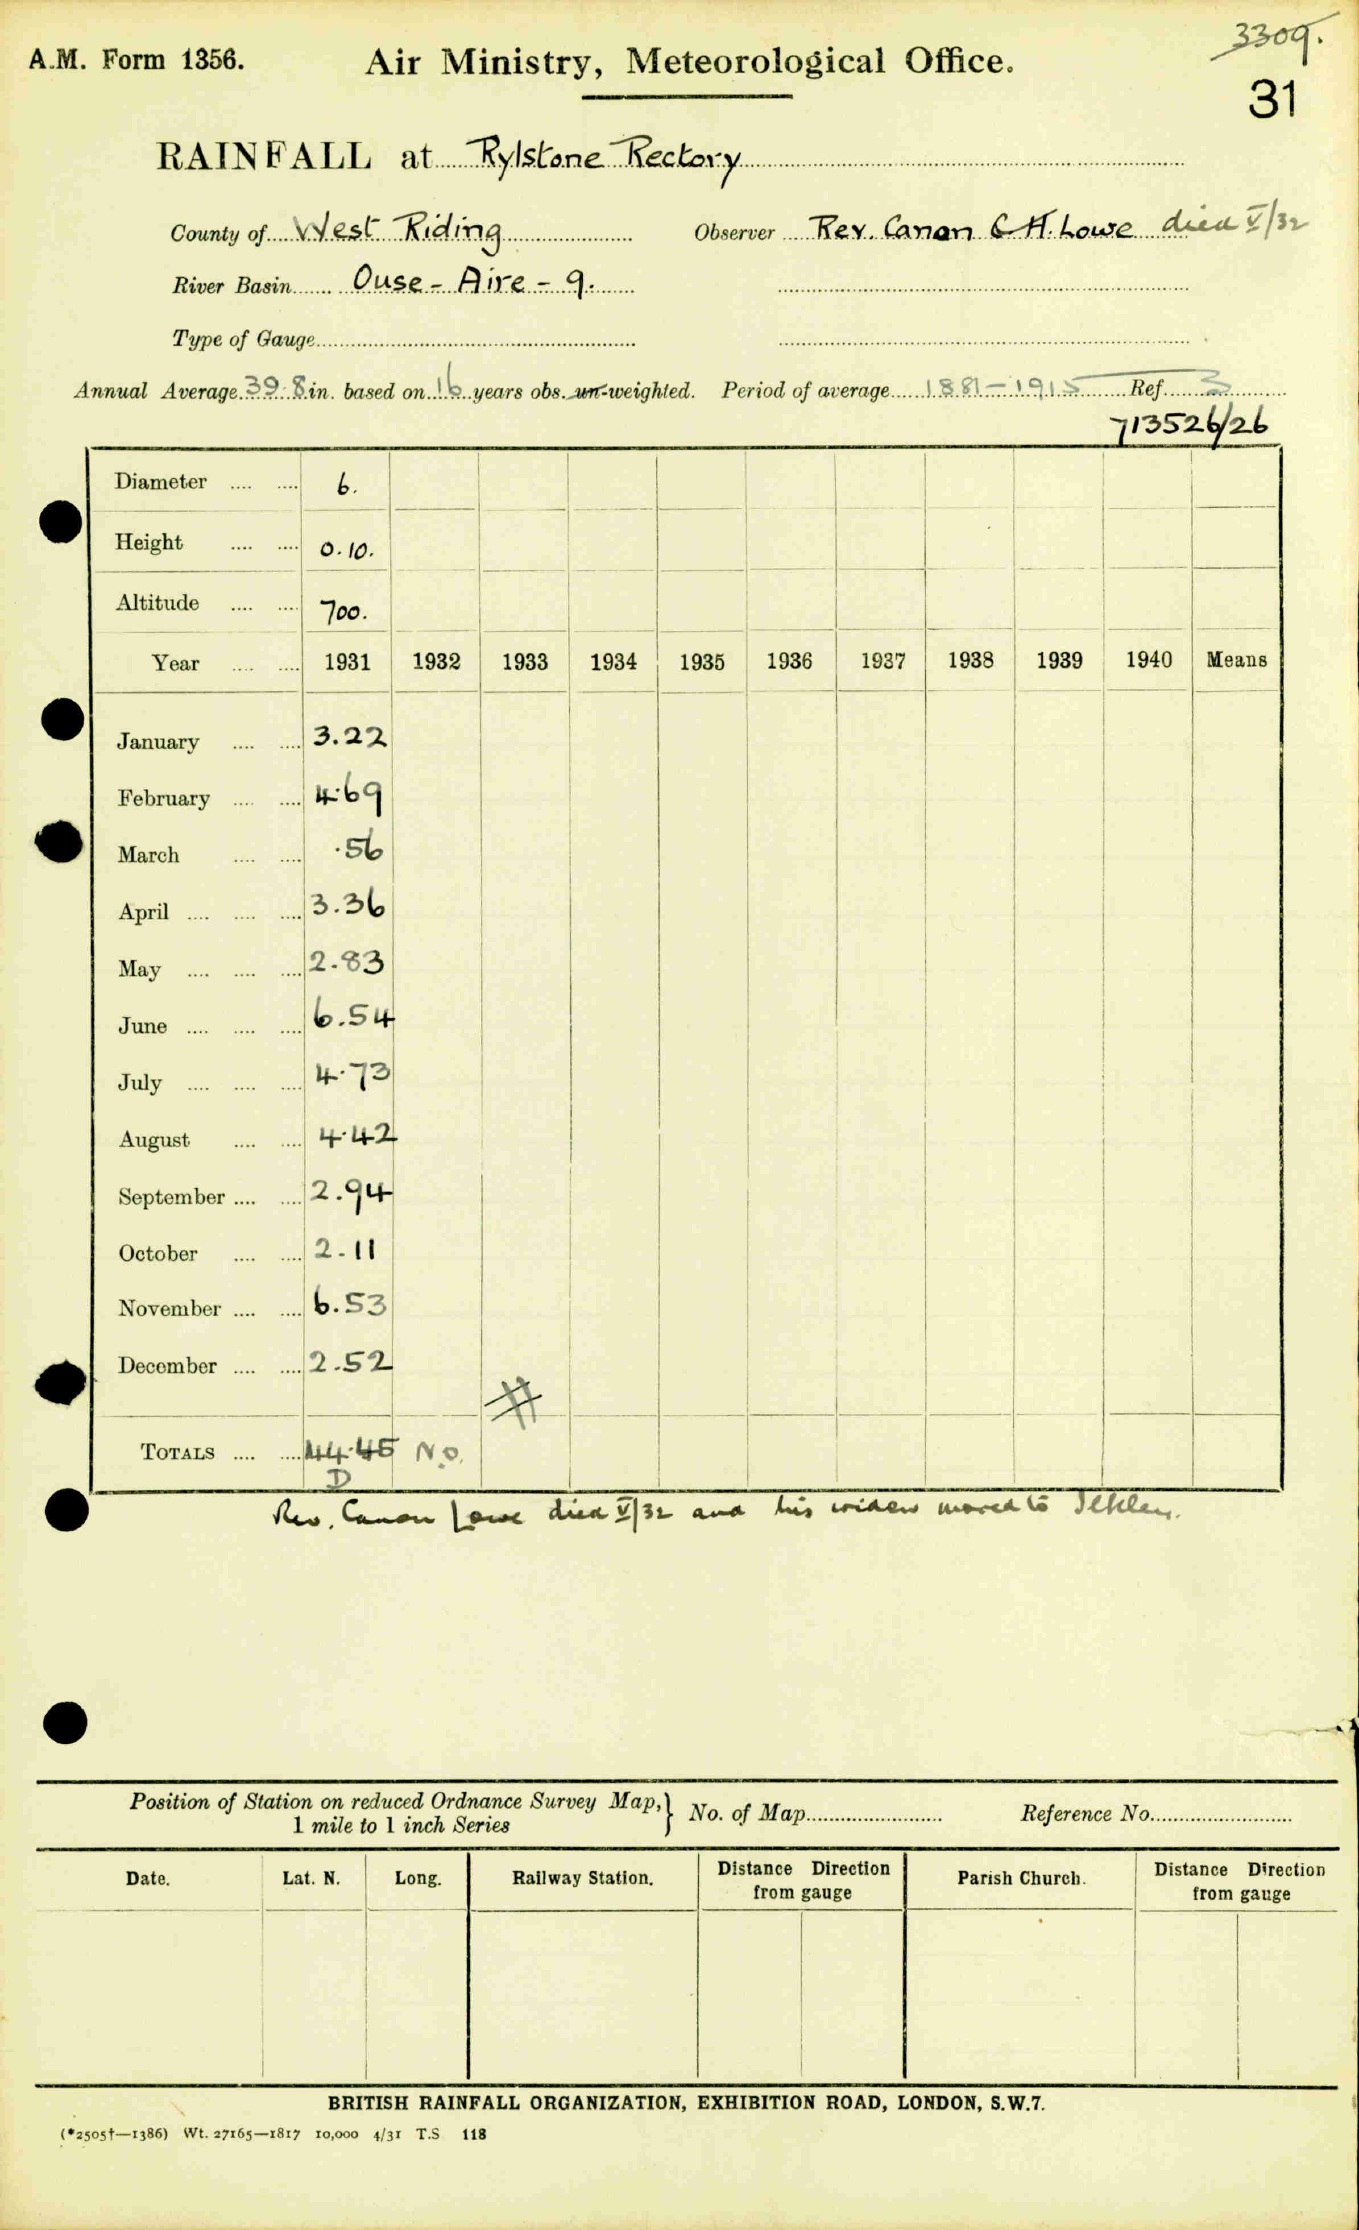 3309.
A.M. Form 1356.
Air Ministry, Meteorological Office.
31
RAINFALL at Rylstone Rectory
County of West Riding Observer Rev. Canon C H. Lowe died V/32
River Basin Ouse - Aire - 9.
Type of Gauge
Annual Average 39.8 in. based on 16 years obs. un-weighted. Period of average 1881-1915 Ref. 3
713526/26
Diameter .... .... 6.
Height .... .... 0.10.
Altitude .... .... 700.
Year .... .... 1931 1932 1933 1934 1935 1936 1937 1938 1939 1940 Means
January .... .... 3.22
February .... .... 4.69
March .... .... .56
April .... .... .... 3.36
May .... .... .... 2.83
June .... .... .... 6.54
July .... .... .... 4.73
August .... .... 4.42
September .... .... 2.94
October .... .... 2.11
November .... .... 6.53
December .... .... 2.52
TOTALS .... .... 44.45 N.O.
D
Rev. Canon Lowe died V/32 and his widow moved to Ilkley.
Position of Station on reduced Ordnance Survey Map, } No. of Map Reference No.
1 mile to 1 inch Series
Date. Lat. N. Long. Railway Station. Distance Direction from gauge Parish Church. Distance Direction from gauge
BRITISH RAINFALL ORGANIZATION, EXHIBITION ROAD, LONDON, S.W.7.
(*2505†—1386) Wt. 27165—1817 10,000 4/31 T.S 118